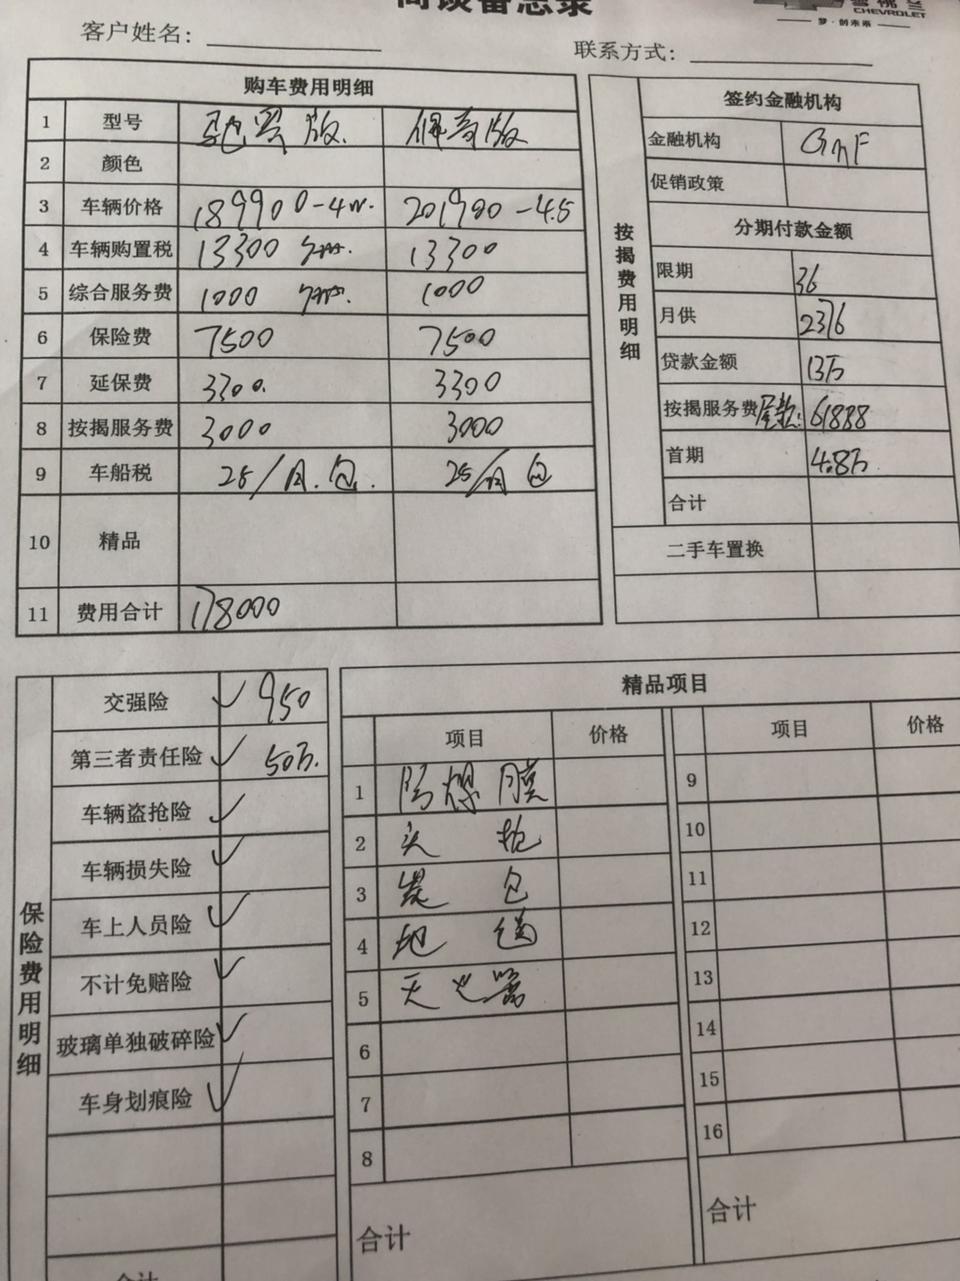 商谈备忘录
雪佛兰
CHEVROLET
梦·创未来
客户姓名：
联系方式：
购车费用明细
1 型号 驰界版. 佩奇版
2 颜色
3 车辆价格 189900-4w. 201900-4.5
4 车辆购置税 13300 13300
5 综合服务费 1000 1000
6 保险费 7500 7500
7 延保费 3300. 3300
8 按揭服务费 3000 3000
9 车船税 25/月.包. 25/月包
10 精品
11 费用合计 178000
按揭费用明细
签约金融机构
金融机构 GMF
促销政策
分期付款金额
限期 36
月供 2376
贷款金额 13万
按揭服务费 尾款: 61888
首期 4.8万
合计
二手车置换
保险费用明细
交强险 ✓ 950
第三者责任险 ✓ 50万.
车辆盗抢险 ✓
车辆损失险 ✓
车上人员险 ✓
不计免赔险 ✓
玻璃单独破碎险 ✓
车身划痕险 ✓
合计
精品项目
项目 价格 项目 价格
1 防爆膜
2 头枕
3
4 地
5 天地
6
7
8
9
10
11
12
13
14
15
16
合计
合计